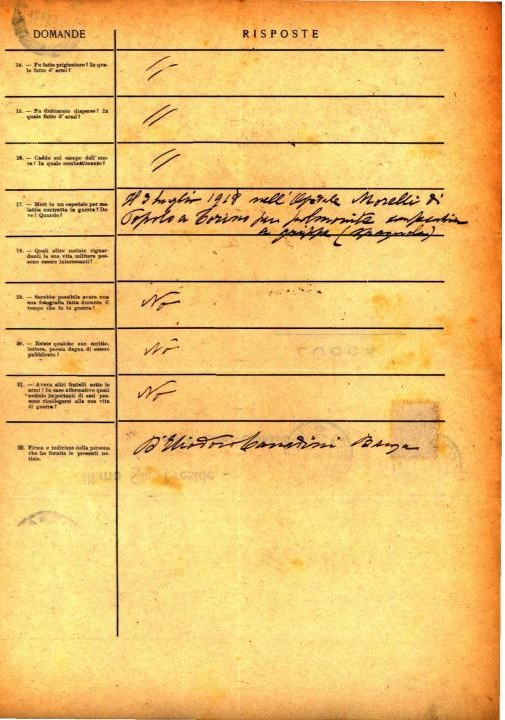 DOMANDE
RISPOSTE
14. — Fu fatto prigioniero? In qua-
le fatto d'armi?
//
15. — Fu dichiarato disperso? In
quale fatto d'armi?
//
16. — Cadde sul campo dell'ono-
re? In quale combattimento?
//
17. — Morì in un ospedale per ma-
lattia contratta in guerra? Do-
ve? Quando?
Il 3 luglio 1918 nell'Ospedale Morelli di
Popolo a Torino per polmonite
a grippe (spagnola)
18. — Quali altre notizie riguar-
danti la sua vita militare pos-
sono essere interessanti?
19. — Sarebbe possibile avere una
sua fotografia fatta durante il
tempo che fu in guerra?
No
20. — Esiste qualche suo scritto,
lettera, poesia degna di essere
pubblicata?
No
21. — Aveva altri fratelli sotto le
armi? In caso affermativo quali
notizie importanti di essi pos-
sono ricollegarsi alla sua vita
di guerra?
No
22. Firma e indirizzo della persona
che ha fornito le presenti no-
tizie.
Barga
LUCCA
Ill.mo Sig. Preside